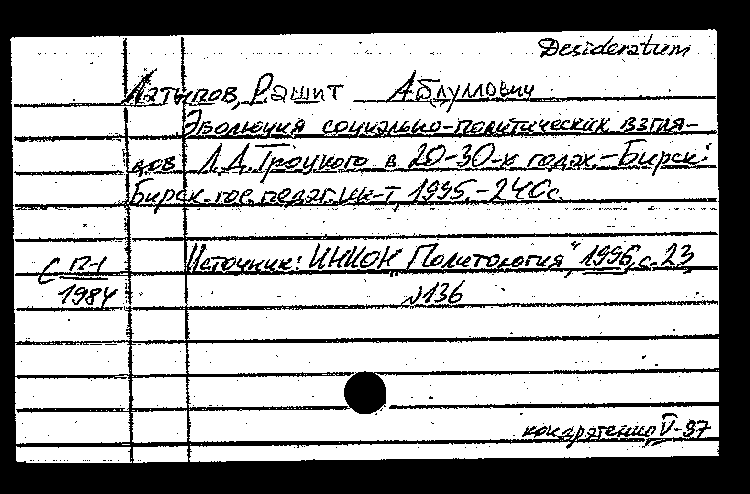 Desideratum
Латыпов, Рашит Аблумович
Эволюция социально-политических взгля-
дов Л.Д. Троцкого в 20-30-х годах.-Бирск:
Бирск. гос. педаг. ин-т, 1995.-240с.
Источник: ИНИОН „Политология", 1996, с. 23,
№136
С П-1
1984
V-97